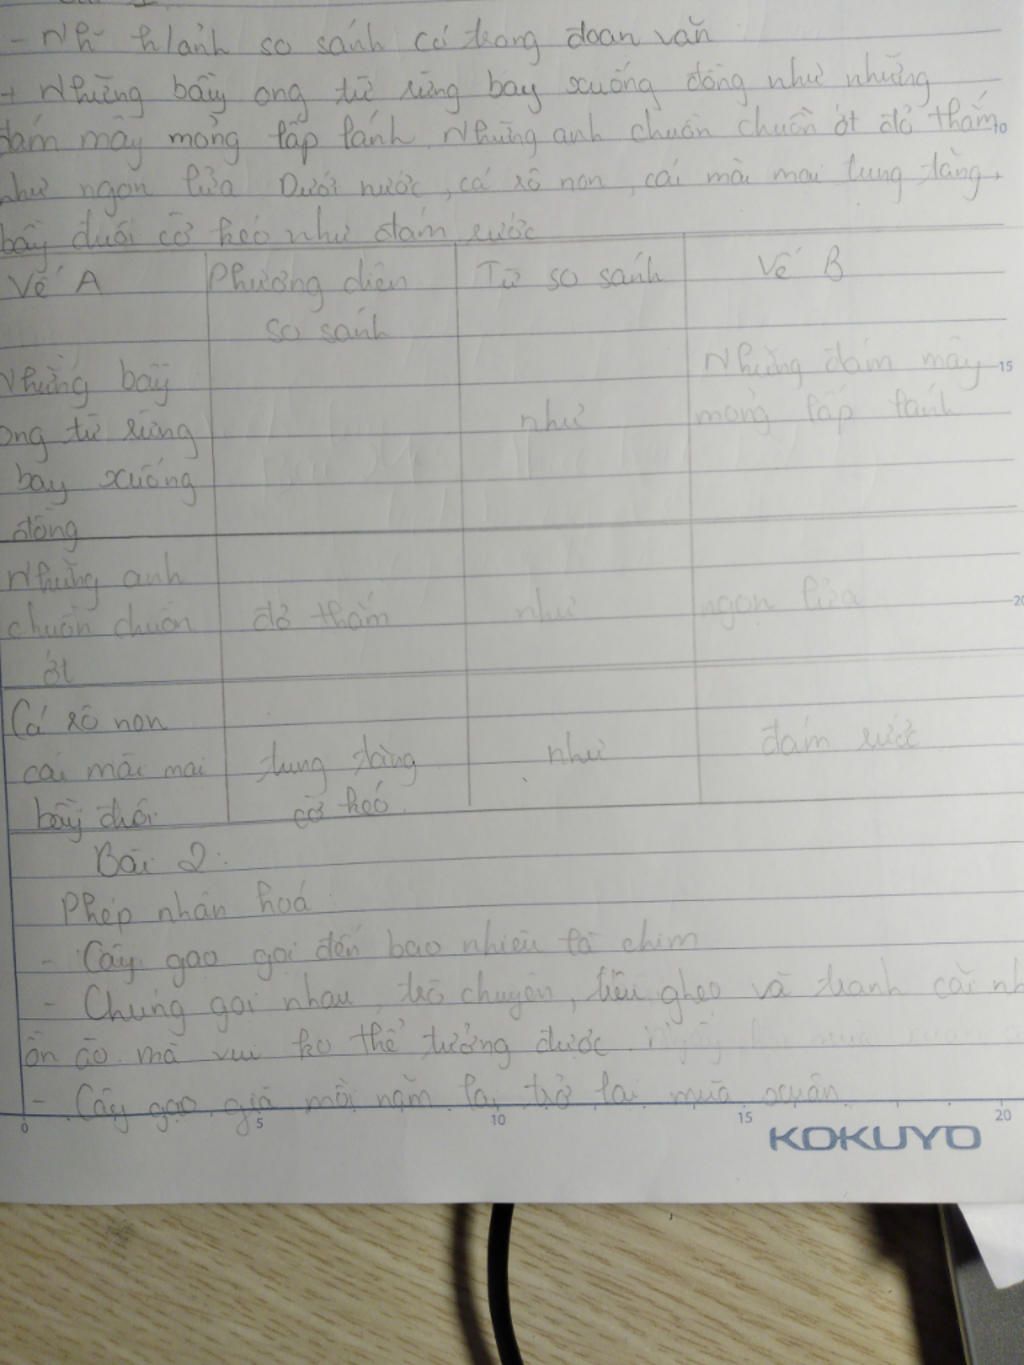 - Nh h/ảnh so sánh có trong đoạn văn
+ Những bầy ong từ rừng bay xuống đồng như những
đám mây mỏng lấp lánh. Những anh chuồn chuồn ớt đỏ thắm
như ngọn lửa Dưới nước, cá rô non, cái mài mại tung tăng,
bầy đuôi cờ kéo như đám rước
Vế A Phương diện Từ so sánh Vế B
so sánh
Những bầy Những đám mây
ong từ rừng như mỏng lấp lánh
bay xuống
đồng
Những anh
chuồn chuồn đỏ thắm như ngọn lửa
ớt
Cá rô non
cái mài mại tung tăng như đám rước
bầy đuôi cờ kéo
Bài 2:
Phép nhân hoá
- Cây gạo gọi đến bao nhiêu là chim
- Chúng gọi nhau, trò chuyện, trêu ghẹo và tranh cãi nh
ồn ào mà vui ko thể tưởng được. Ngày
- Cây gạo già mỗi năm lại trở lại mùa xuân
15
20
10
0 5 10 15 20
KOKUYO